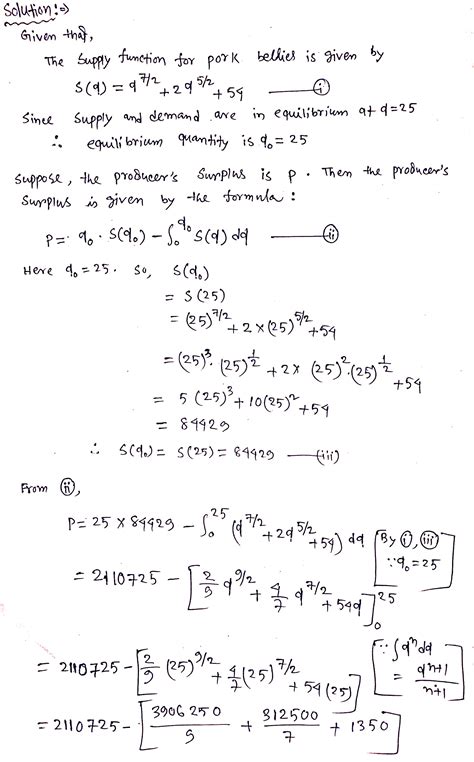 Solution:⇒
Given that,
The supply function for pork bellies is given by
S(q) = q^{7/2} + 2q^{5/2} + 54 —— (i)
Since supply and demand are in equilibrium at q=25
∴ equilibrium quantity is q₀ = 25
Suppose, the producer's surplus is P. Then the producer's
surplus is given by the formula:
P = q₀ · S(q₀) – ∫₀^{q₀} S(q) dq —— (ii)
Here q₀ = 25. So, S(q₀)
= S(25)
= (25)^{7/2} + 2×(25)^{5/2} + 54
= (25)³·(25)^{1/2} + 2× (25)²·(25)^{1/2} + 54
= 5(25)³ + 10(25)² + 54
= 84429
∴ S(q₀) = S(25) = 84429 —— (iii)
From (ii),
P = 25 × 84429 – ∫₀^{25} (q^{7/2} + 2q^{5/2} + 54) dq [By (i), (iii) ∵ q₀ = 25]
= 2110725 – [2/9 q^{9/2} + 4/7 q^{7/2} + 54q]₀^{25}
= 2110725 – [2/9 (25)^{9/2} + 4/7 (25)^{7/2} + 54(25)] [∵ ∫qⁿdq = q^{n+1}/n+1]
= 2110725 – [3906250/9 + 312500/7 + 1350]